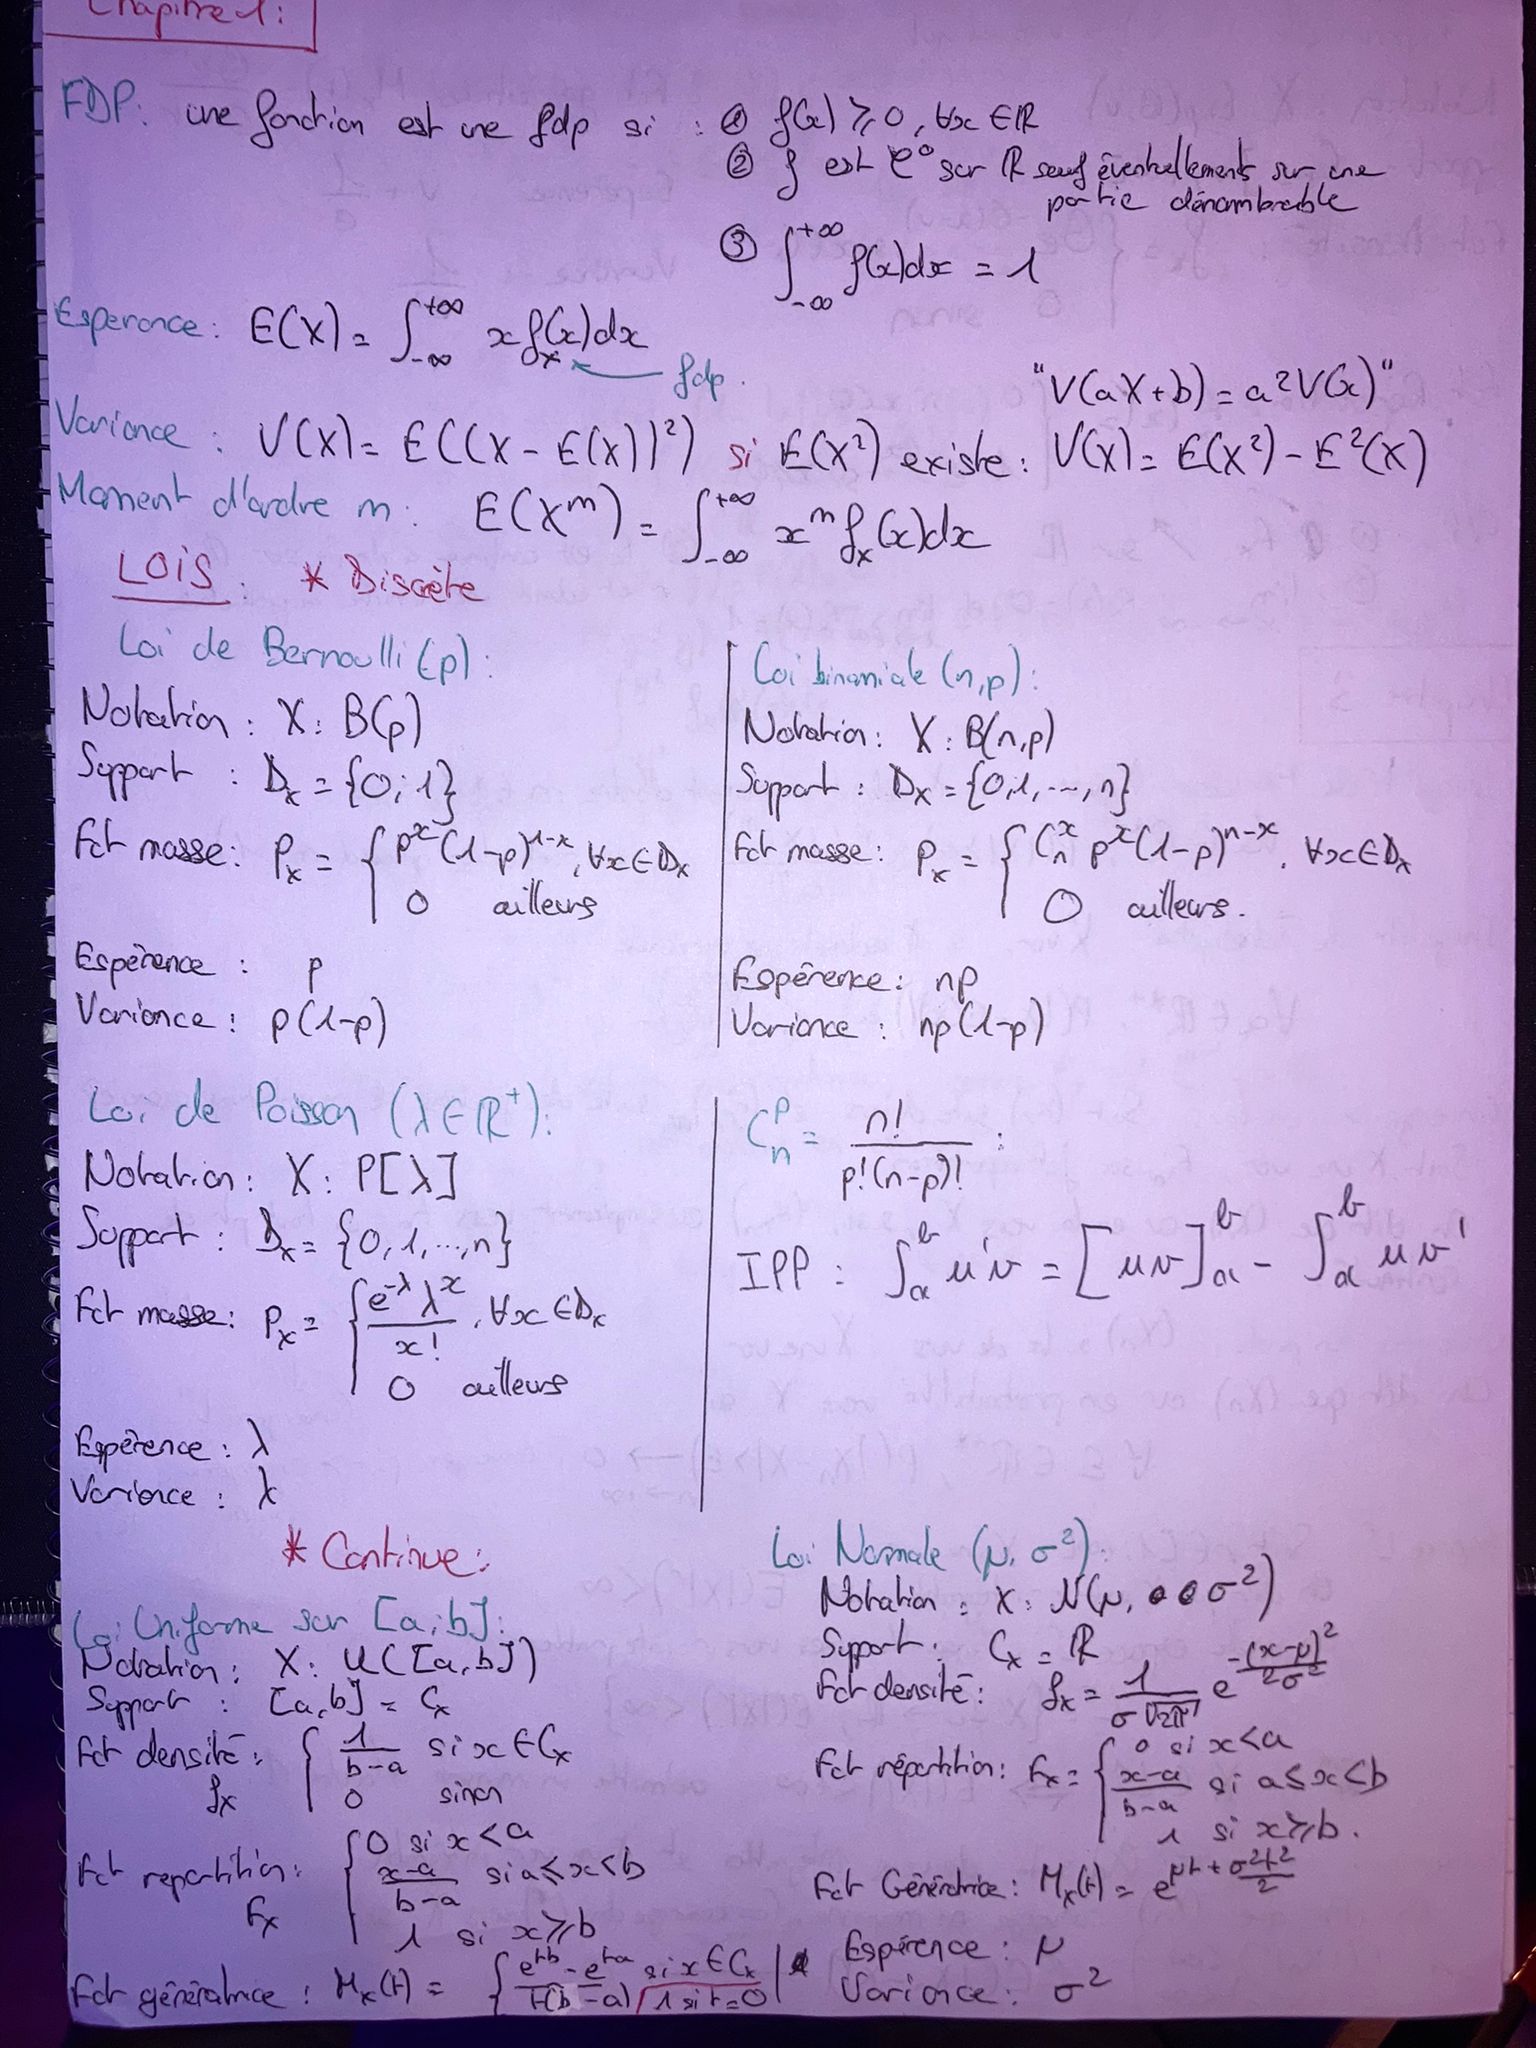 Chapitre 1:
FDP: une fonction est une fdp si : ① f(x) ≥ 0, ∀x ∈ ℝ
② f est C⁰ sur ℝ sauf éventuellements sur une
partie dénombrable
③ ∫_{-∞}^{+∞} f(x)dx = 1
Esperance: E(X) = ∫_{-∞}^{+∞} x f_x(x)dx
fdp.
"V(aX+b) = a²V(x)"
Variance : V(X) = E((X - E(X))²) si E(X²) existe: V(X) = E(X²) - E²(X)
Moment d'ordre m: E(X^m) = ∫_{-∞}^{+∞} x^m f_x(x)dx
LOIS: * Discrète
Loi de Bernoulli (p):
Notation : X: B(p)
Support : D_x = {0;1}
Fct masse: P_x = { p^x (1-p)^{1-x}, ∀x ∈ D_x
0 ailleurs
Espérence : p
Variance : p(1-p)
Loi binomiale (n,p):
Notation: X: B(n,p)
Support : D_x = {0,1,...,n}
Fct masse: P_x = { C_n^x p^x (1-p)^{n-x}, ∀x ∈ D_x
0 ailleurs.
Espérence: np
Variance : np(1-p)
Loi de Poisson (λ ∈ ℝ⁺):
Notation: X: P[λ]
Support : D_x = {0,1,...,n}
Fct masse: P_x = { e^{-λ} λ^x / x! , ∀x ∈ D_x
0 ailleurs
Espérence : λ
Variance : λ
C_n^p = n! / p!(n-p)! :
IPP : ∫_a^b u'v = [uv]_a^b - ∫_a^b uv'
* Continue:
Loi Uniforme sur [a;b]:
Notation: X: U([a,b])
Support : [a,b] = C_x
Fct densité: { 1/(b-a) si x ∈ C_x
f_x 0 sinon
Fct repartition: { 0 si x < a
(x-a)/(b-a) si a ≤ x < b
F_x
1 si x ≥ b
Fct génératrice : M_x(t) = { (e^{tb} - e^{ta}) / t(b-a) si x ∈ C_x
1 si t=0
Loi Normale (μ, σ²):
Notation : X: N(μ, σ²)
Support: C_x = ℝ
Fct densité: f_x = 1/(σ√2π) e^{-(x-μ)²/2σ²}
Fct répartition: F_x = { 0 si x<a
(x-a)/(b-a) si a ≤ x < b
1 si x ≥ b.
Fct Génératrice: M_x(t) = e^{μt + σ²t²/2}
Espérence : μ
Variance : σ²